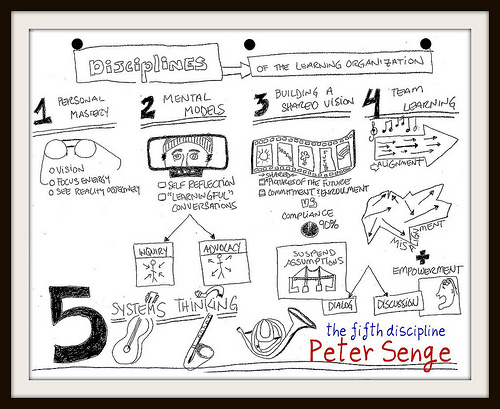 DISCIPLINES
OF THE LEARNING ORGANIZATION
1 PERSONAL
MASTERY
VISION
FOCUS ENERGY
SEE REALITY OBJECTIVELY
2 MENTAL
MODELS
SELF REFLECTION
"LEARNINGFUL"
CONVERSATIONS
INQUIRY
ADVOCACY
3 BUILDING A
SHARED VISION
SHARED
PICTURES OF THE FUTURE
COMMITMENT & ENROLLMENT
VS
COMPLIANCE
90%
SUSPEND
ASSUMPTIONS
DIALOG
DISCUSSION
4 TEAM
LEARNING
ALIGNMENT
MISALIGNMENT
+
EMPOWERMENT
5 SYSTEMS THINKING
the fifth discipline
Peter Senge